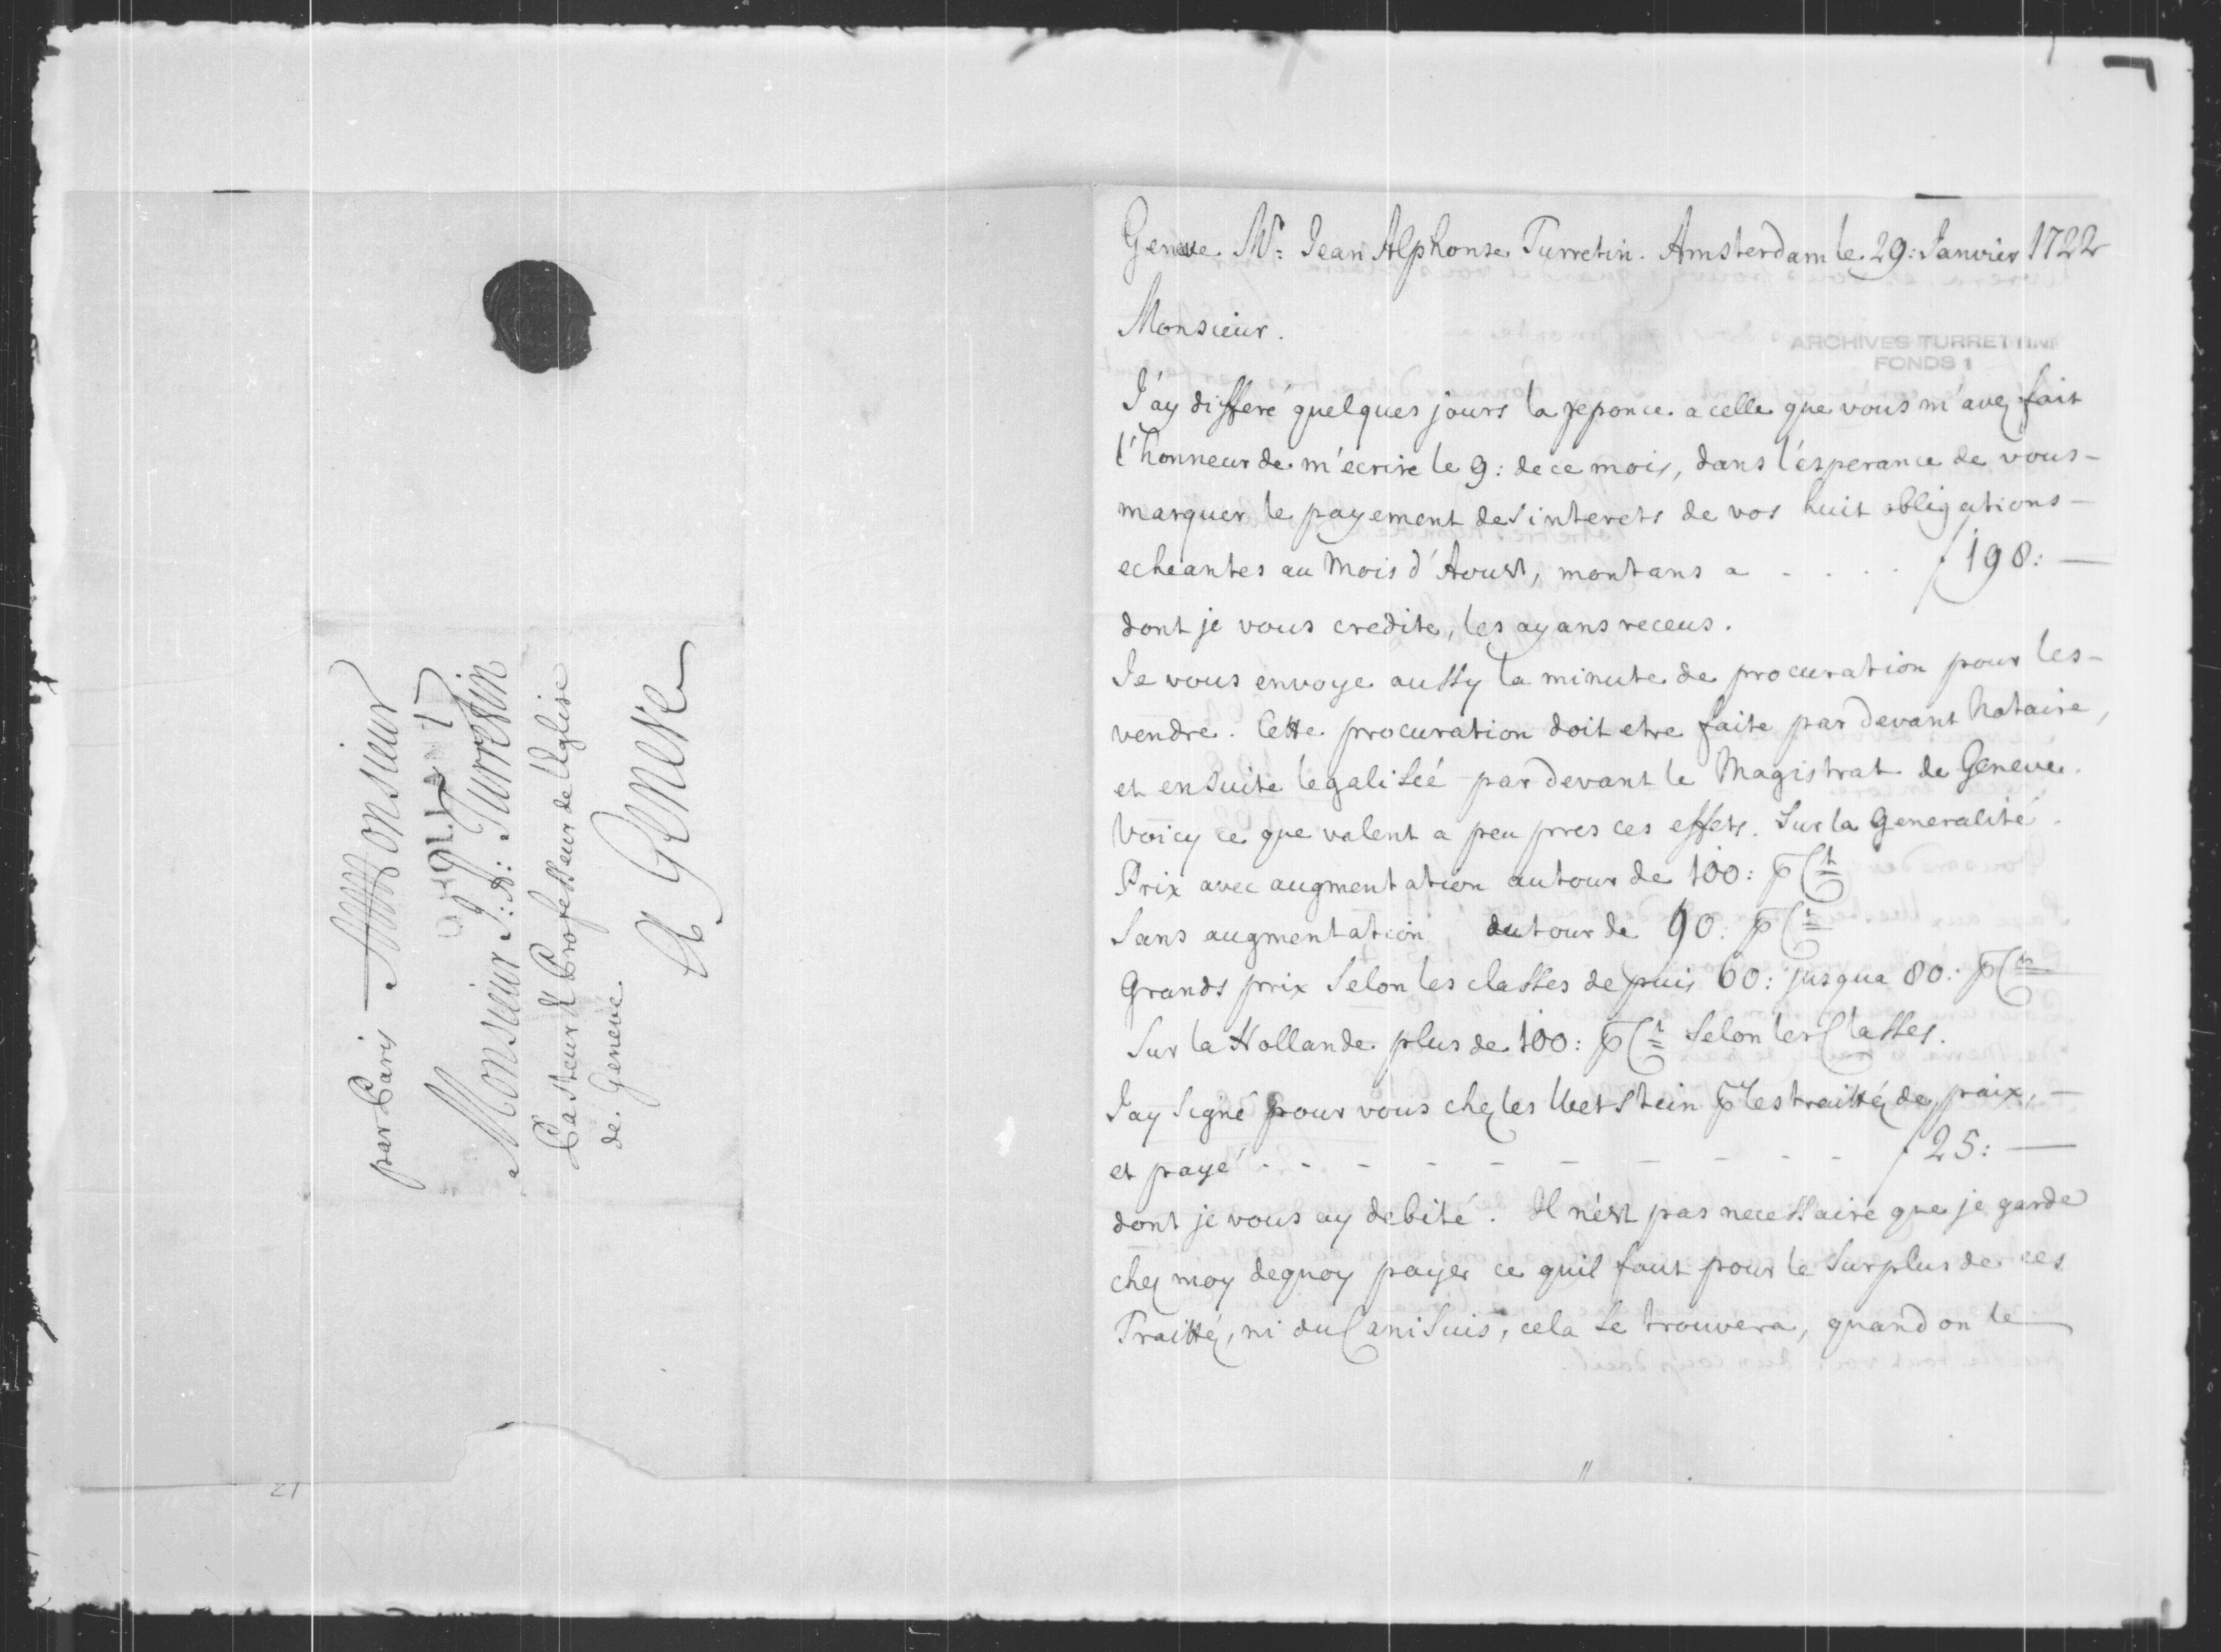 par Paris
A Monsieur
D'HOLLAND
Monsieur J: A: Turretin
Pasteur & Professeur de l'Eglise
de Geneve.
A Geneve
21
Geneve Mr: Jean Alphonse Turretin. Amsterdam le 29: Janvier 1722
Monsieur.
ARCHIVES TURRETTINI
FONDS 1
J'ay differé quelques jours la reponce a celle que vous m'avez fait
l'honneur de m'ecrire le 9: de ce mois, dans l'esperance de vous-
marquer le payement des interets de vos huit obligations-
echeantes au Mois d'Aoust, montans a - . . . f 198: —
dont je vous credite, les ayans receus.
Je vous envoye aussy la minute de procuration pour les-
vendre. Cette procuration doit etre faite par devant Notaire,
et ensuite legalisée par devant le Magistrat de Geneve.
Voicy ce que valent a peu pres ces effets. Sur la Generalité.
Prix avec augmentation autour de 100: p Ct
Sans augmentation, autour de 90: p Ct
Grands prix Selon les classes depuis 60: jusqua 80: p Ct
Sur la Hollande plus de 100: p Ct Selon les Classes.
Jay Signé pour vous chez les Wetstein p les traittéz de paix, —
et payé - - - - - - - - - - f 25: —
dont je vous ay debité. Il n'est pas necessaire que je garde
chez moy dequoy payer ce quil faut pour le Surplus de ces
Traittéz, ni du Canisuis, cela Se trouvera, quand on le